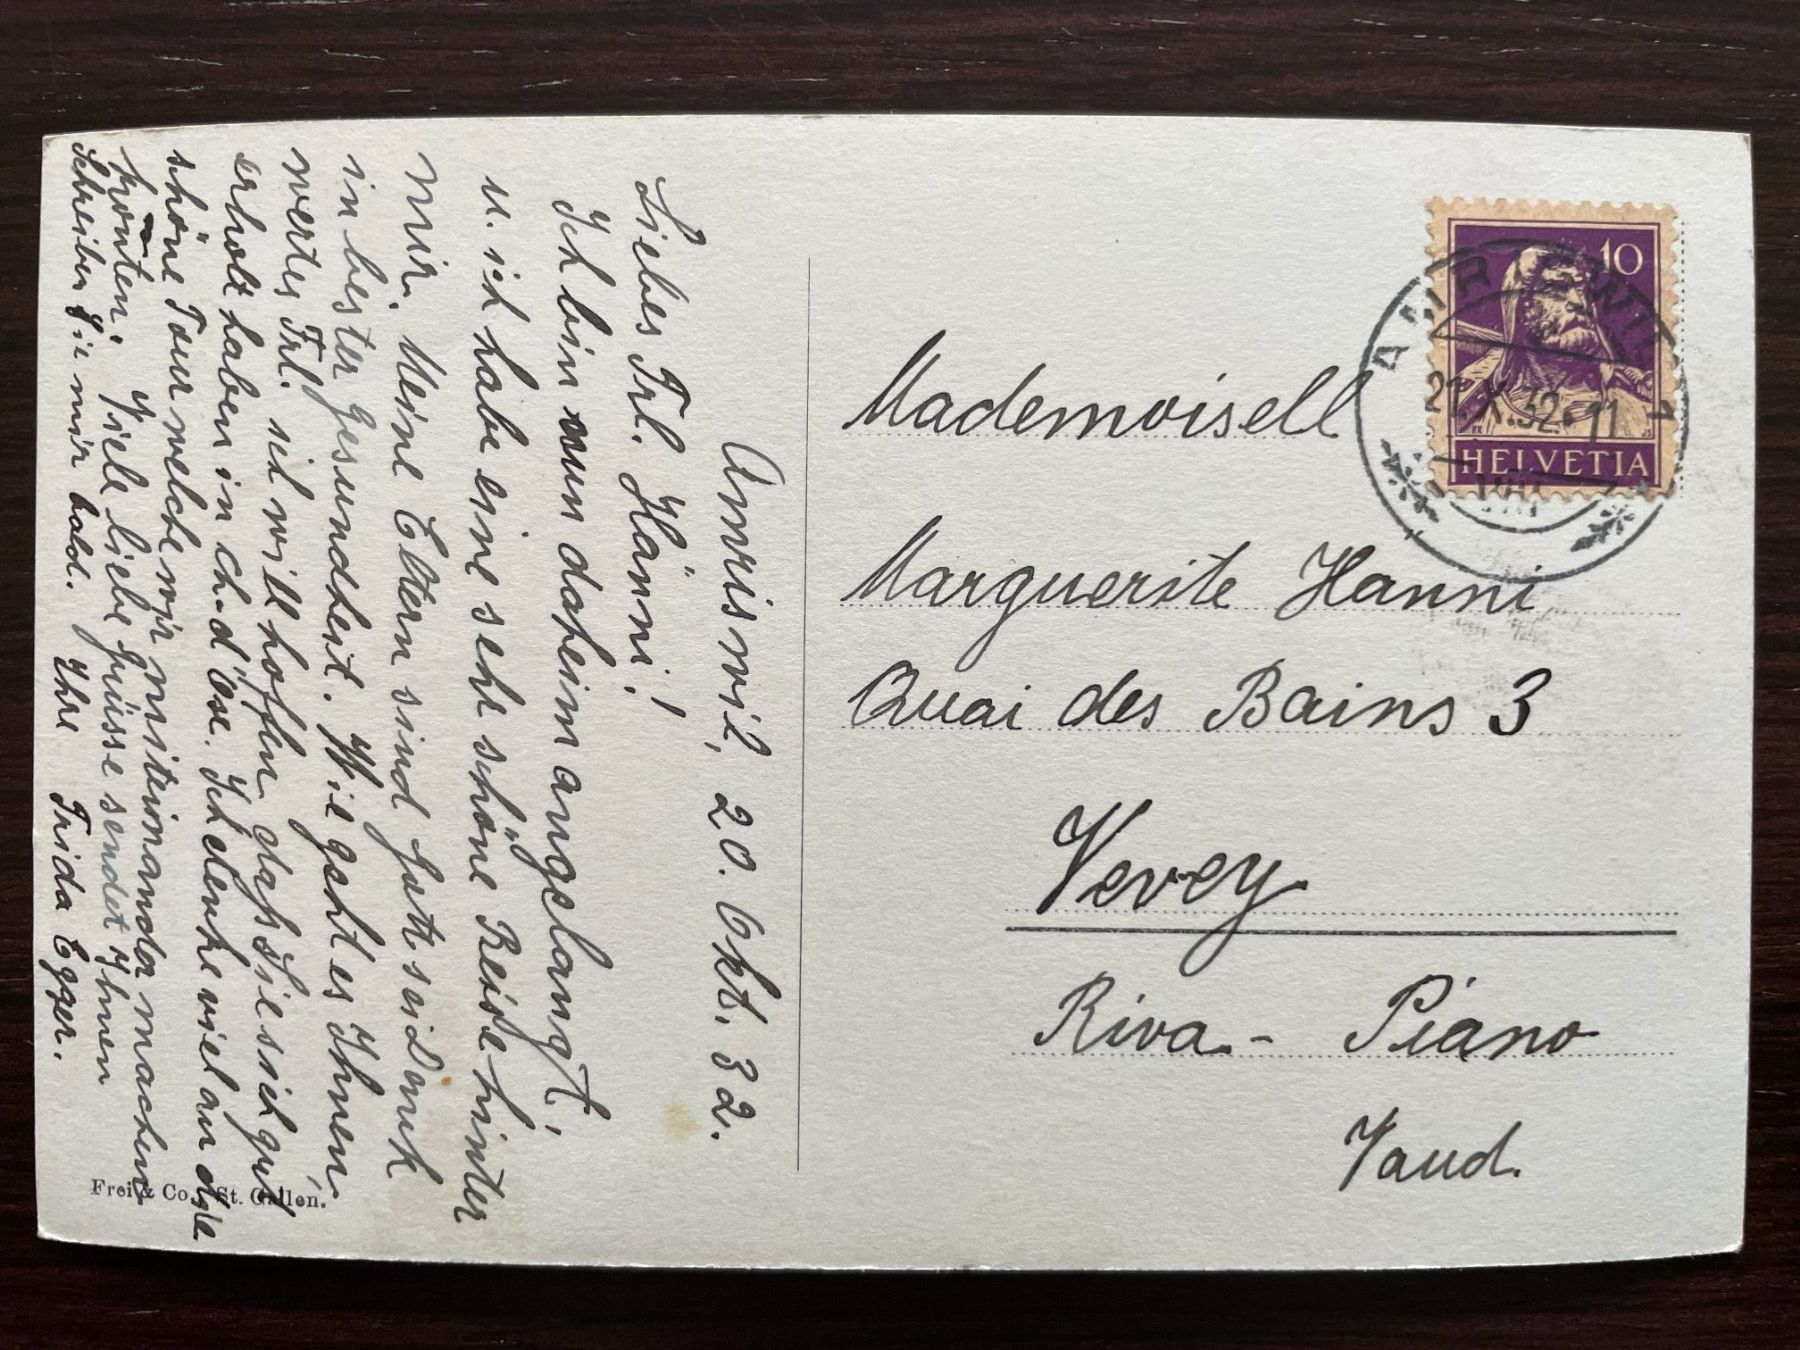 Amriswil, 20. Okt. 32.
Liebes Frl. Hänni!
Ich bin nun daheim angelangt,
u. ich habe eine sehr schöne Reise hinter
mir. Meine Eltern sind Gott sei Dank
in bester Gesundheit. Wie geht es Ihnen
wertes Frl. ich will hoffen dass Sie sich gut
erholt haben in Ch-d'Öse. Ich denke viel an die
schöne Tour welche wir miteinander machen
konnten. Viele liebe Grüsse sendet Ihnen
Schreiben Sie mir bald. Ihre Frida Egger.
Frei & Co., St. Gallen.
10
HELVETIA
21.X.32.11
Mademoisell
Marguerite Hanni
Quai des Bains 3
Vevey
Riva-Piano
Vaud.